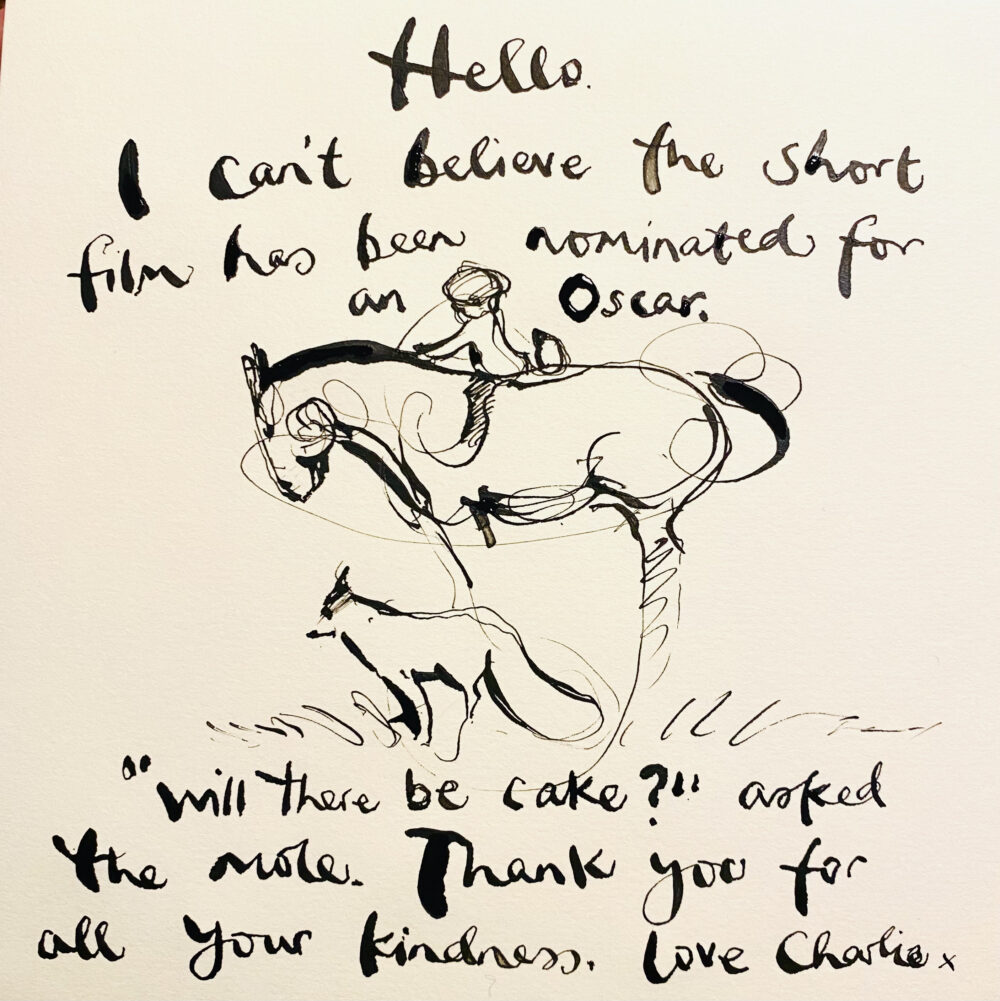 Hello.
I can't believe the short
film has been nominated for
an Oscar.
"will there be cake?" asked
the mole. Thank you for
all your kindness. Love Charlie x